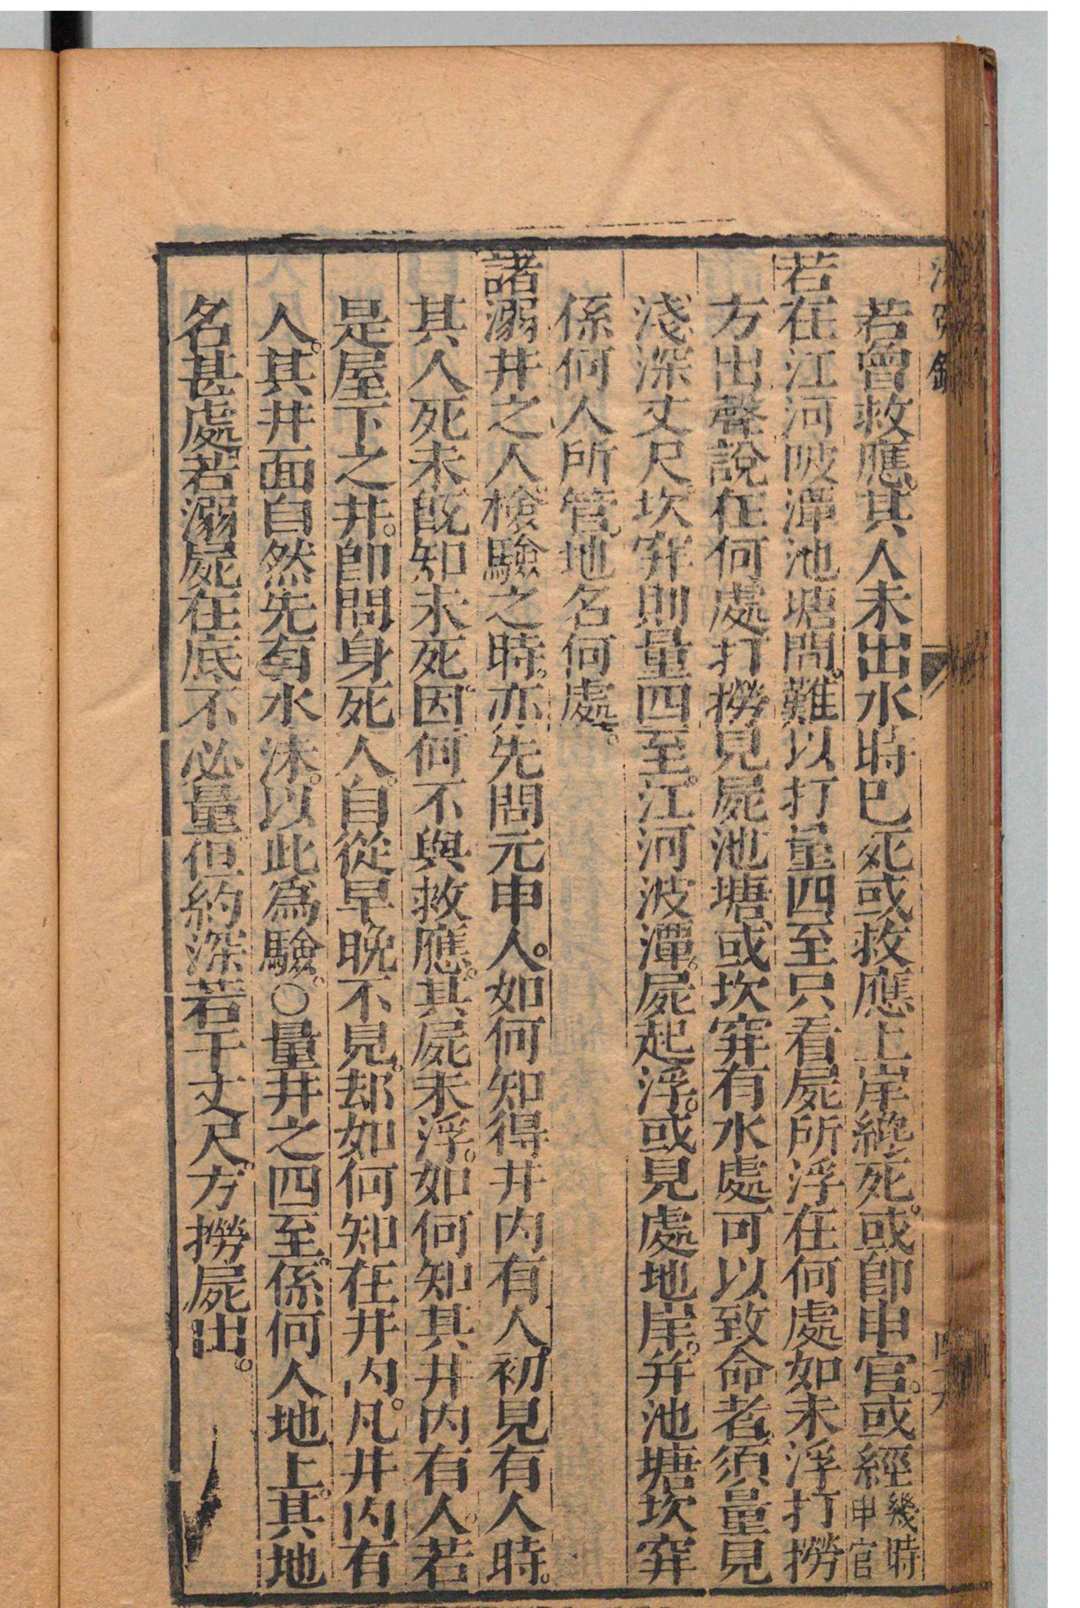 若曾救應其人未出水時已死或救應上岸纔死或卽申官或經幾時申官
若在江河陂潭池塘間難以打量四至只看屍所浮在何處如未浮打撈
方出聲說在何處打撈見屍池塘或坎穽有水處可以致命者須量見
淺深丈尺坎穽則量四至江河波潭屍起浮或見處地岸并池塘坎穽
係何人所管地名何處
諸溺井之人檢驗之時亦先問元申人如何知得井內有人初見有人時
其人死未旣知未死因何不與救應其屍未浮如何知其井內有人若
是屋下之井卽問身死人自從早晚不見却如何知在井內凡井內有
人其井面自然先有水沫以此爲驗○量井之四至係何人地上其地
名甚處若溺屍在底不必量但約深若干丈尺方撈屍出